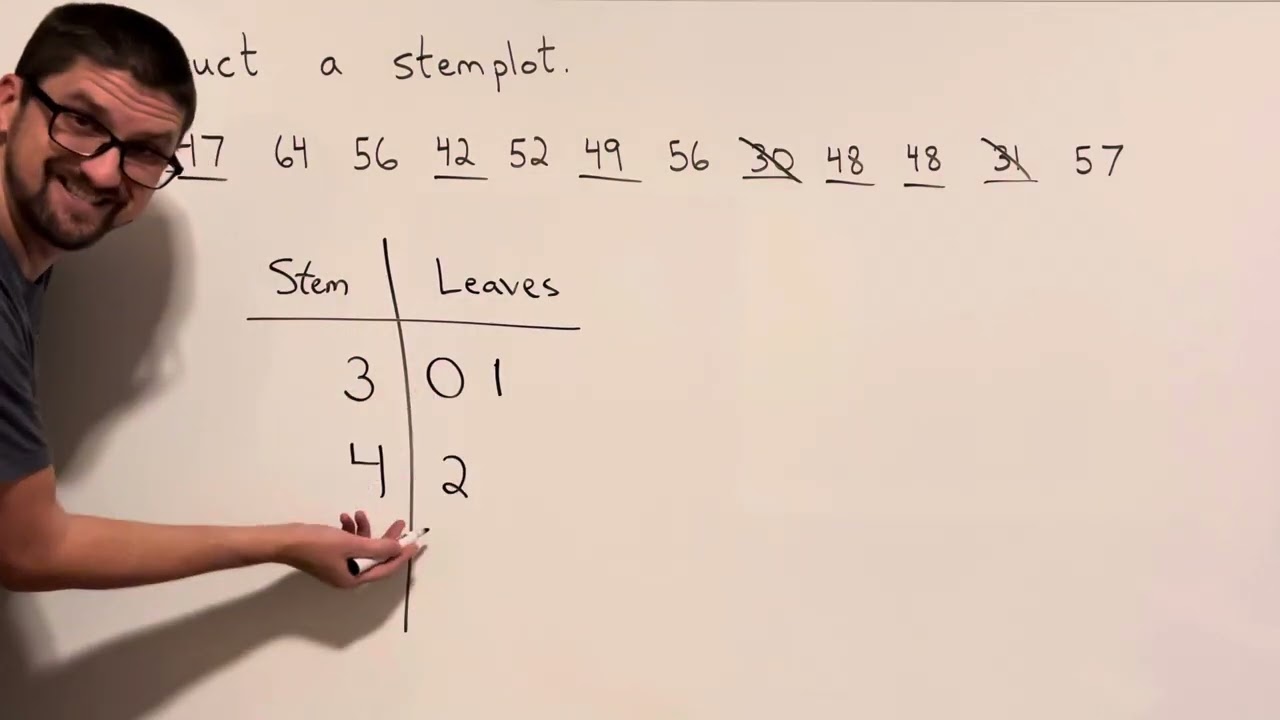 a stemplot.
47 64 56 42 52 49 56 30 48 48 31 57
Stem Leaves
3 0 1
4 2